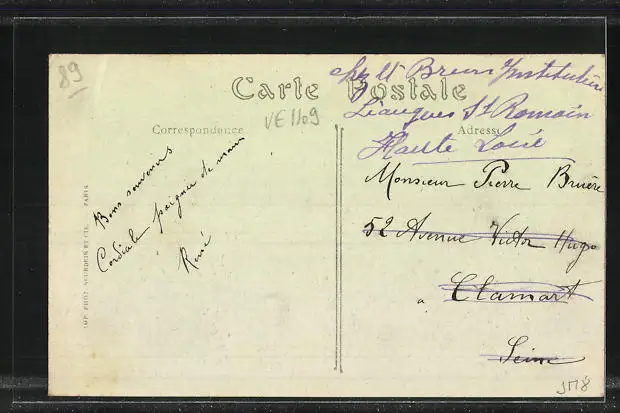 89
Carte Postale
VE1109
Correspondance
Adresse
Bons souvenirs
Cordiale poignée de main
René
IMP. PHOT. NEURDEIN ET CIE. PARIS
Brun Institutrice
St Romain
Haute Loire
Monsieur Pierre Bruère
52 Avenue Victor Hugo
à Clamart
Seine